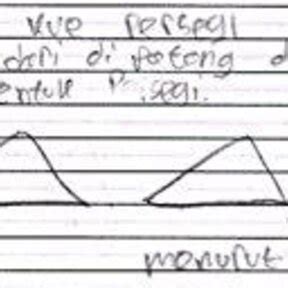 kue persegi
dari di potong d
entuk P segi.
menurut